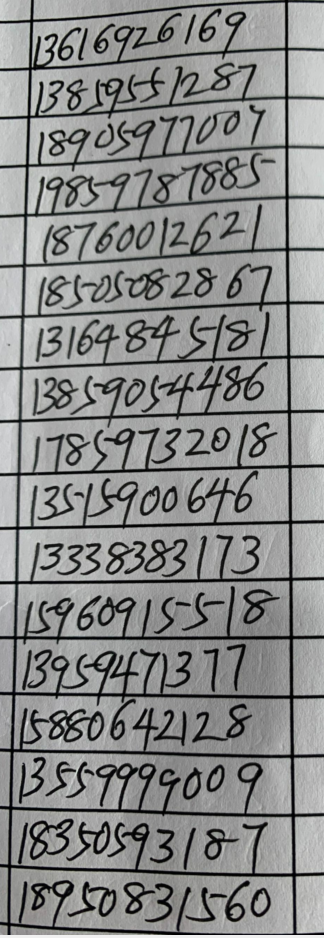 13616926169
13859551287
18905977007
19859787885
18760012621
18505082867
13164845181
13859054486
17859732018
13515900646
13338383173
15960915518
13959471377
15880642128
13559999009
18350593187
18950831560